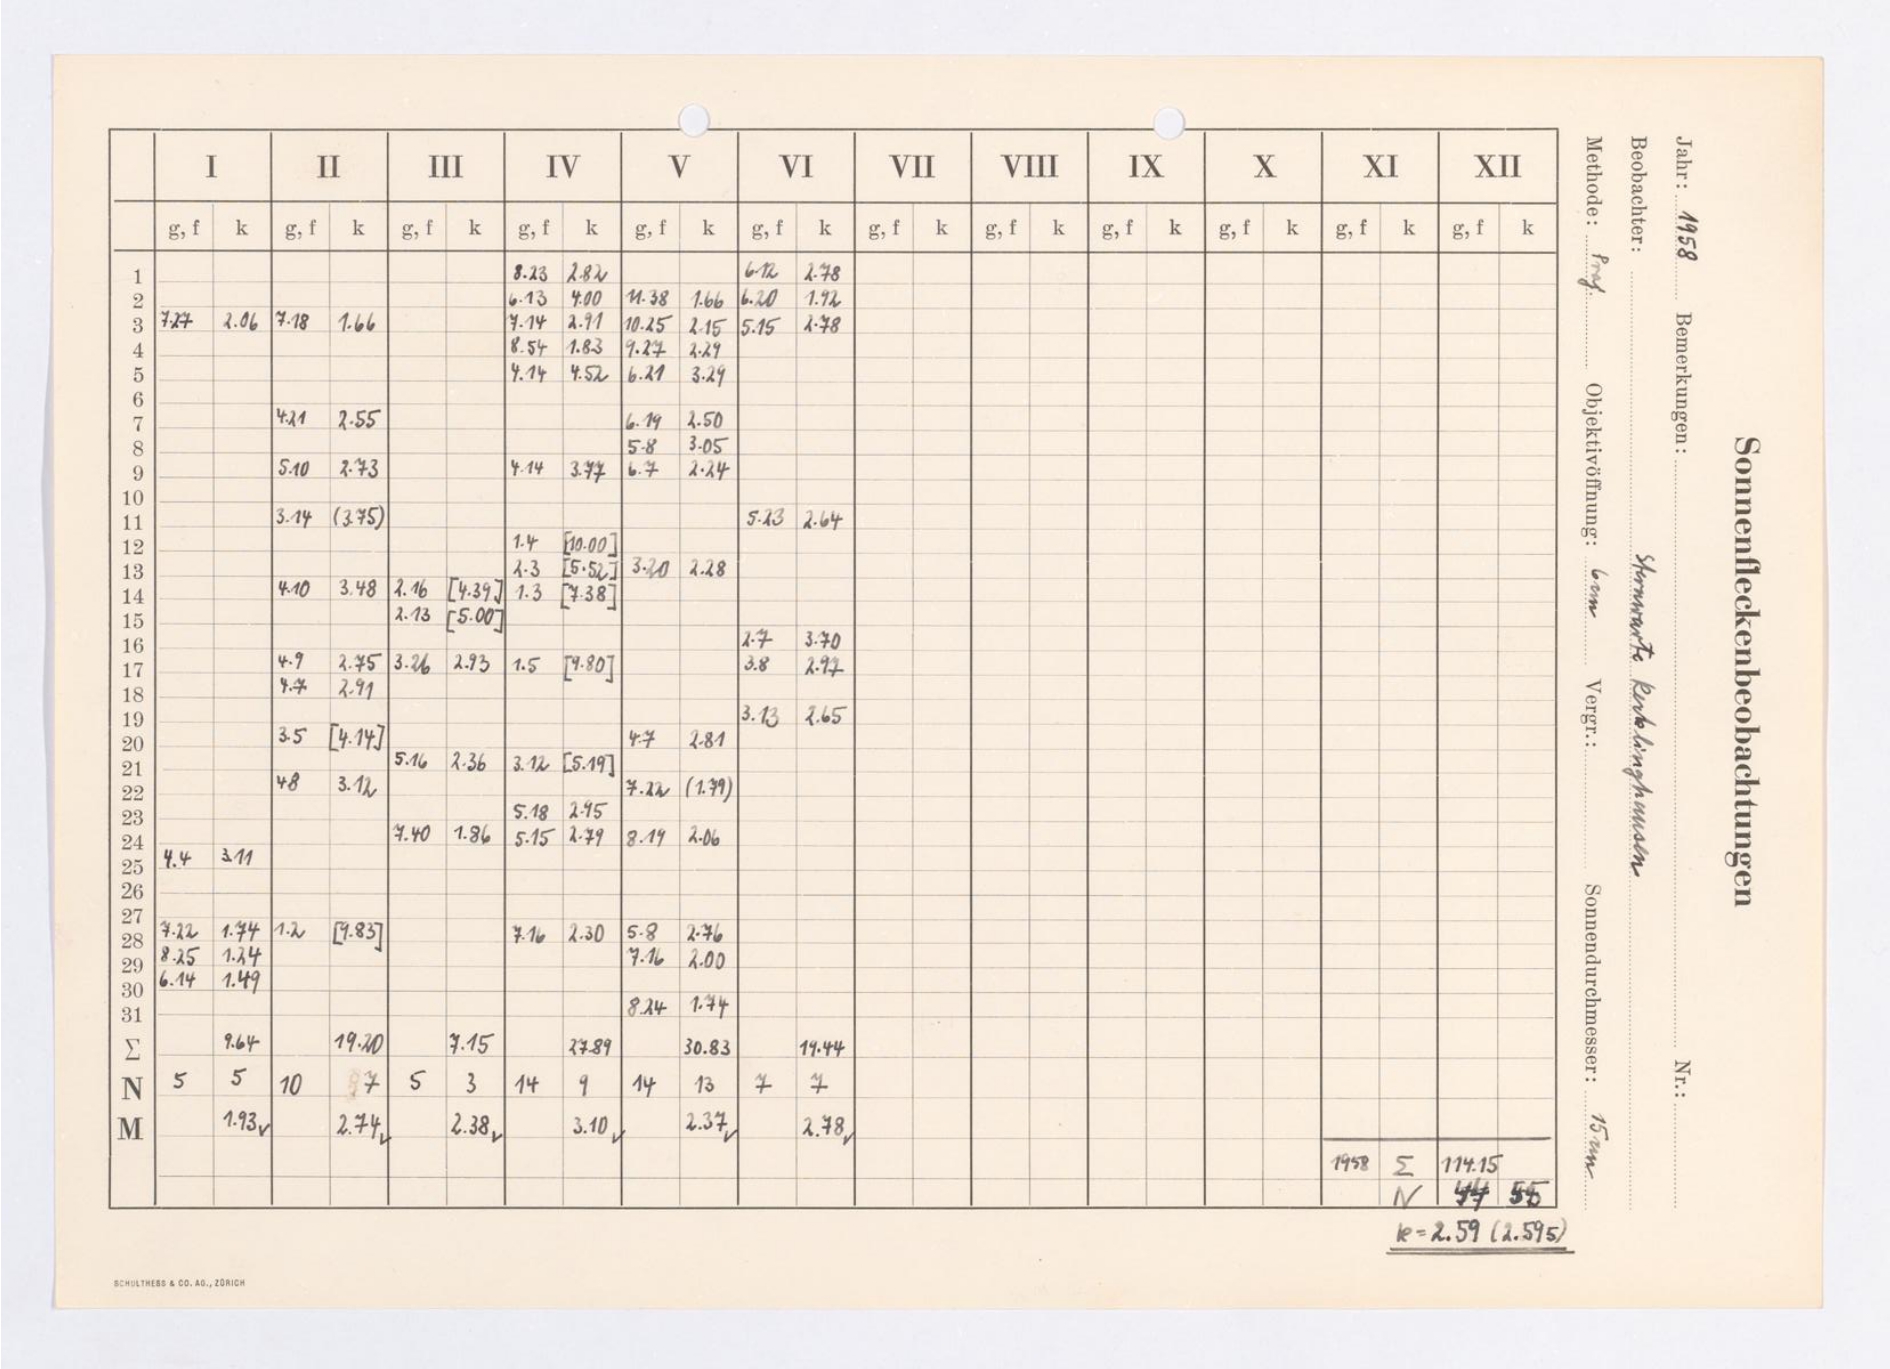 Sonnenfleckenbeobachtungen
Jahr: 1958 Bemerkungen: Nr.:
Beobachter: Sternwarte
Methode: Proj. Objektivöffnung: 6 cm Vergr.: Sonnendurchmesser: 15 cm
I II III IV V VI VII VIII IX X XI XII
g, f k g, f k g, f k g, f k g, f k g, f k g, f k g, f k g, f k g, f k g, f k g, f k
1 8.23 2.82 6.12 2.78
2 6.13 4.00 11.38 1.66 6.20 1.92
3 7.27 2.06 7.18 1.66 7.14 2.91 10.25 2.15 5.15 2.78
4 8.54 1.83 9.27 2.29
5 4.14 4.52 6.21 3.29
6
7 4.21 2.55 6.19 2.50
8 5.8 3.05
9 5.10 2.73 4.14 3.77 6.7 2.24
10
11 3.14 (3.75) 5.23 2.64
12 1.4 [10.00]
13 2.3 [5.52] 3.20 2.28
14 4.10 3.48 2.16 [4.39] 1.3 [7.38]
15 2.13 [5.00]
16 2.7 3.70
17 4.9 2.75 3.26 2.93 1.5 [9.80] 3.8 2.97
18 4.7 2.91
19 3.13 2.65
20 3.5 [4.14] 4.7 2.81
21 5.16 2.36 3.12 [5.19]
22 4.8 3.12 7.22 (1.79)
23 5.18 2.95
24 7.40 1.86 5.15 2.79 8.19 2.06
25 4.4 3.11
26
27
28 7.22 1.74 1.2 [9.83] 7.16 2.30 5.8 2.76
29 8.25 1.24 7.16 2.00
30 6.14 1.49
31 8.24 1.74
Σ 9.64 19.20 7.15 27.89 30.83 19.44
N 5 5 10 7 5 3 14 9 14 13 7 7
M 1.93✓ 2.74✓ 2.38✓ 3.10✓ 2.37✓ 2.78✓
1958 Σ 114.15
N 44 55
k = 2.59 (2.595)
SCHULTHESS & CO. AG., ZÜRICH